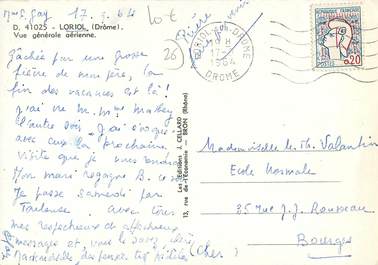 Mme S. Gay 17. 3. 64
D. 41025 - LORIOL (Drôme)
Vue générale aérienne.
Gâchée par une grosse
fièvre de mon père, la
fin des vacances est là !
J'ai vu M. Mme
l'autre soir. J'ai
avec eux la prochaine
visite que je vous
Mon mari regagne B. ce soir
Je passe samedi par
Toulouse avec tous
mes respectueux et affectueux
messages et, vous le savez, chère
Mademoiselle, des pensées très
20
LORIOL-SUR-DROME
17-3
1964
DROME
REPUBLIQUE FRANCAISE
POSTES
0,20
Les Editions J. CELLARD
13, rue de l'Economie - BRON (Rhône)
Mademoiselle M. Th. Valantin
Ecole Normale
35 rue J. J. Rousseau
Bourges
(Cher)